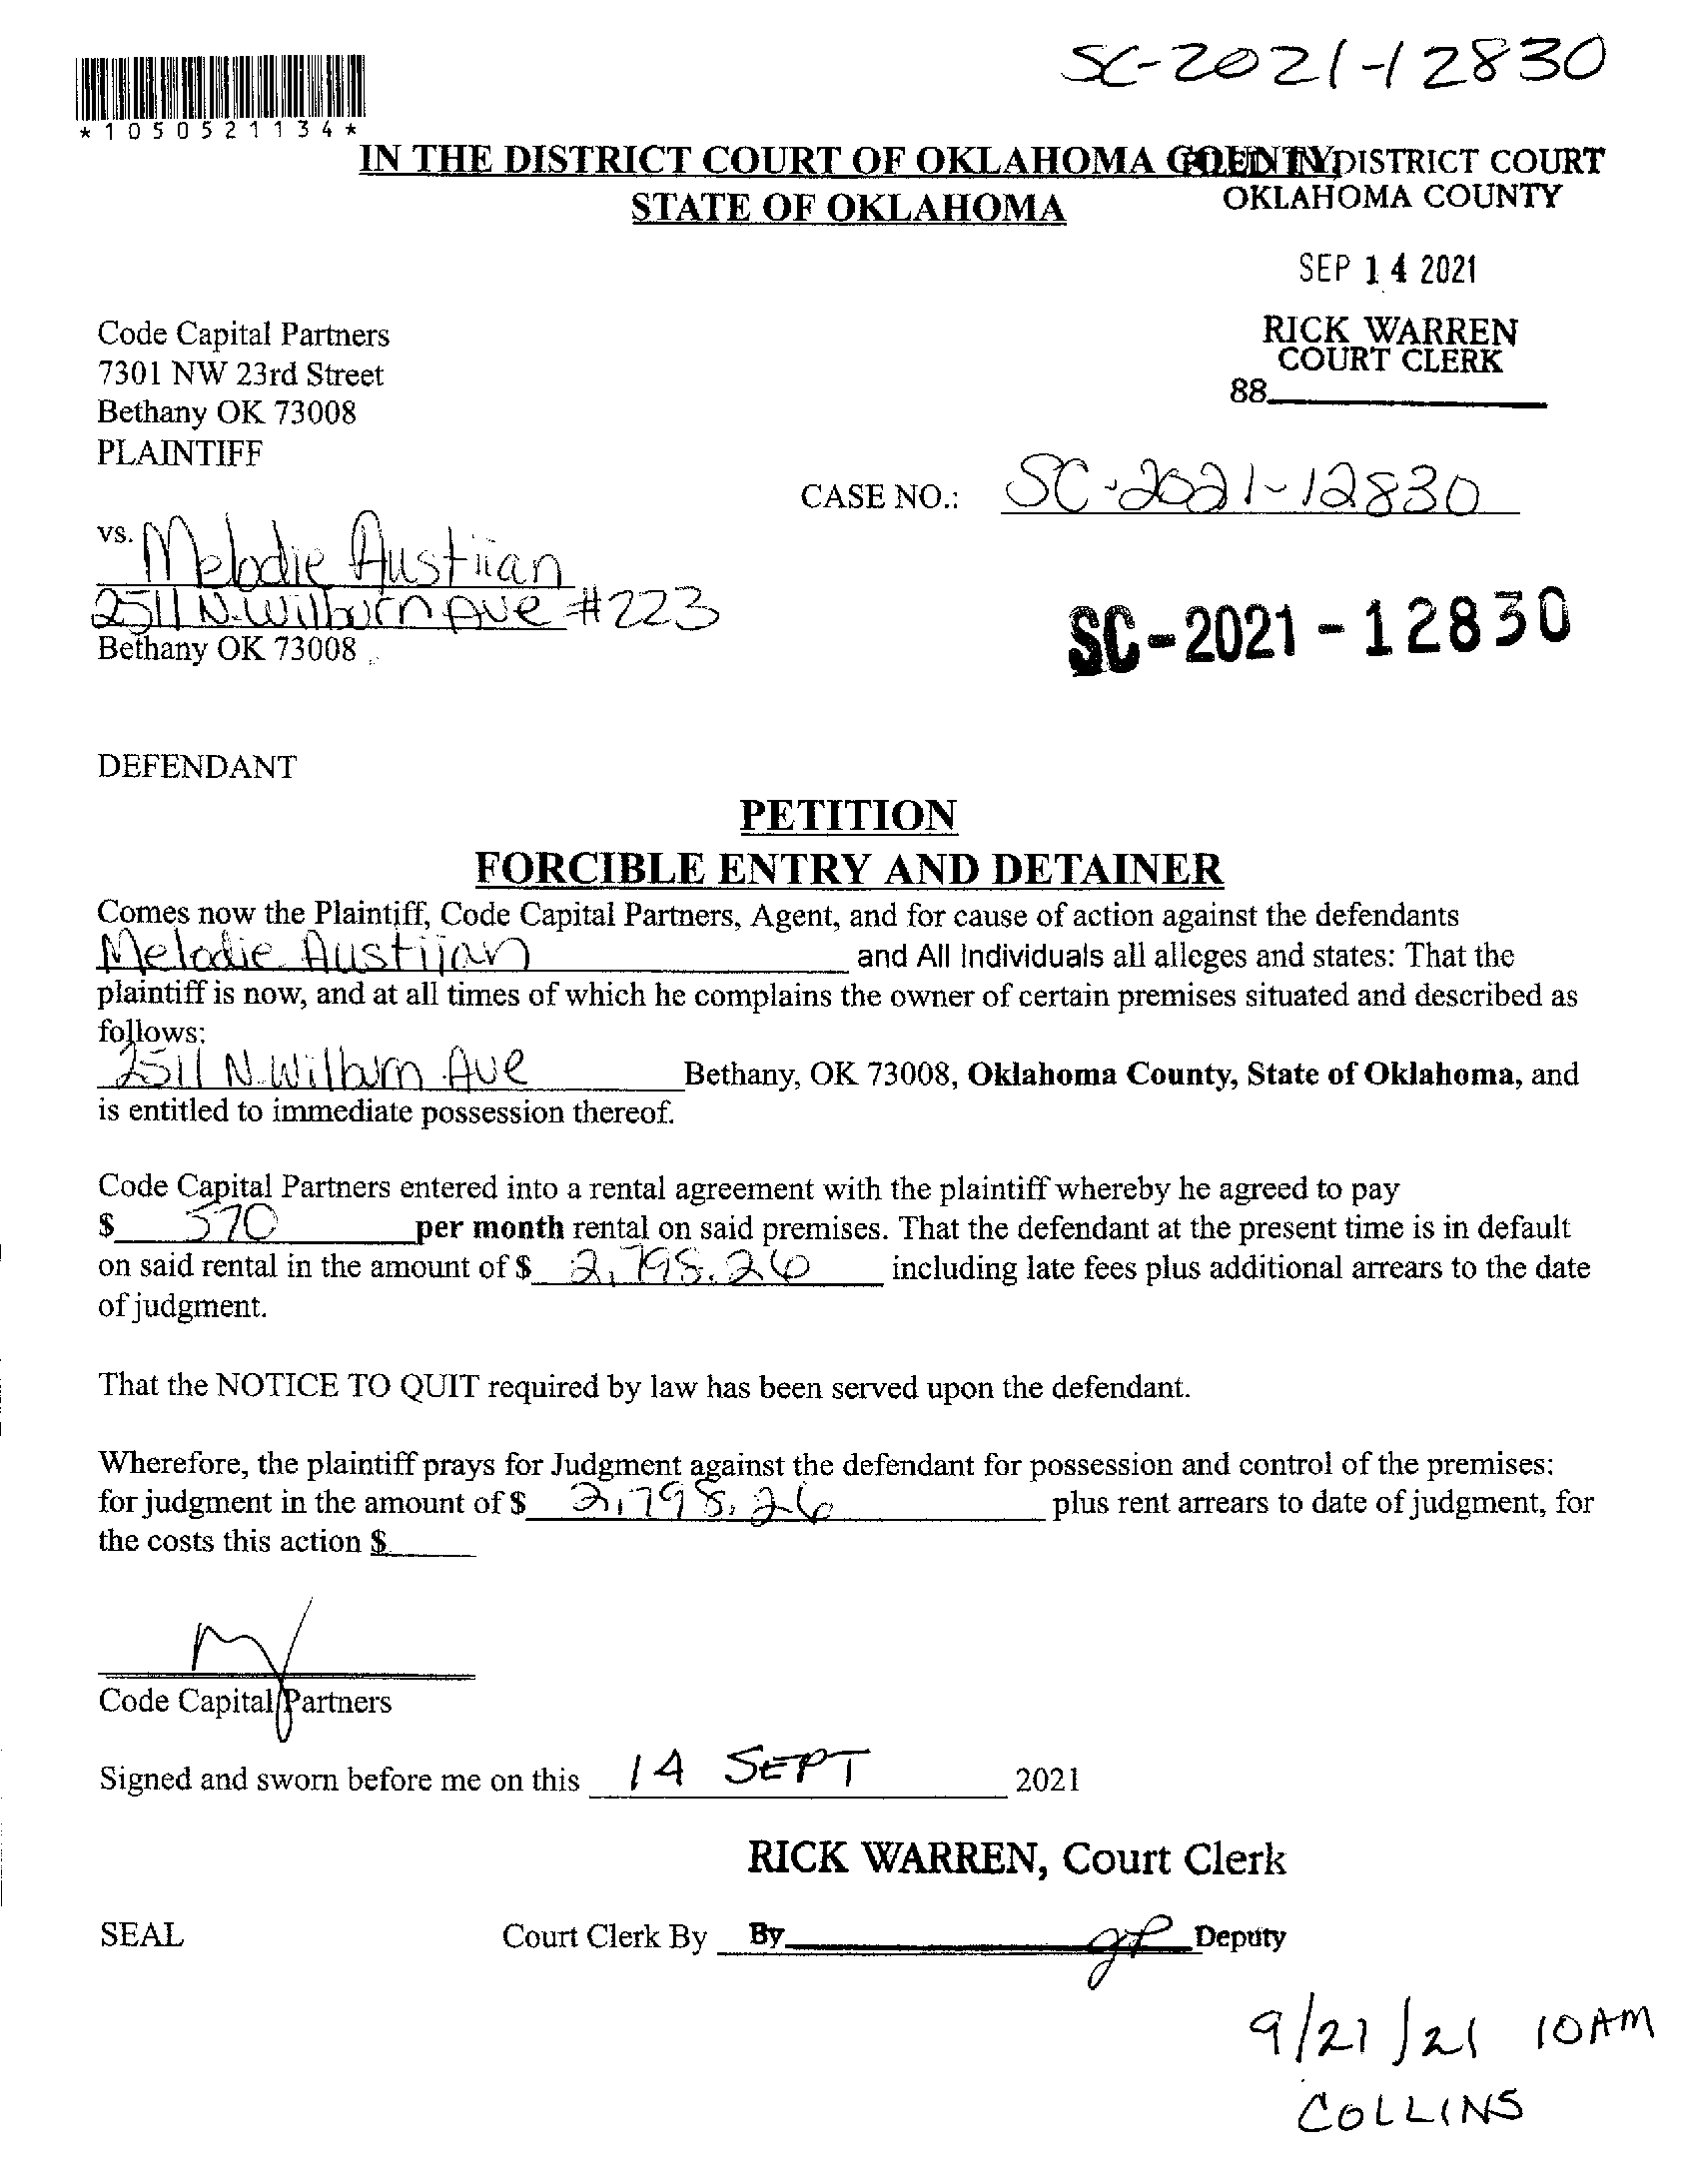 SC-2021-12830
*1050521134*
IN THE DISTRICT COURT OF OKLAHOMA COUNTY
STATE OF OKLAHOMA
FILED IN DISTRICT COURT
OKLAHOMA COUNTY
SEP 14 2021
RICK WARREN
COURT CLERK
88
Code Capital Partners
7301 NW 23rd Street
Bethany OK 73008
PLAINTIFF
CASE NO.: SC-2021-12830
vs. Melodie Austiian
2511 N. Wilburn Ave #223
Bethany OK 73008
SC-2021-12830
DEFENDANT
PETITION
FORCIBLE ENTRY AND DETAINER
Comes now the Plaintiff, Code Capital Partners, Agent, and for cause of action against the defendants
Melodie Austiian and All Individuals all alleges and states: That the
plaintiff is now, and at all times of which he complains the owner of certain premises situated and described as
follows:
2511 N. Wilburn Ave Bethany, OK 73008, Oklahoma County, State of Oklahoma, and
is entitled to immediate possession thereof.
Code Capital Partners entered into a rental agreement with the plaintiff whereby he agreed to pay
$ 570 per month rental on said premises. That the defendant at the present time is in default
on said rental in the amount of $ 2,798.26 including late fees plus additional arrears to the date
of judgment.
That the NOTICE TO QUIT required by law has been served upon the defendant.
Wherefore, the plaintiff prays for Judgment against the defendant for possession and control of the premises:
for judgment in the amount of $ 2,798.26 plus rent arrears to date of judgment, for
the costs this action $
Code Capital Partners
Signed and sworn before me on this 14 SEPT 2021
RICK WARREN, Court Clerk
SEAL Court Clerk By By Deputy
9/21/21 10AM
COLLINS